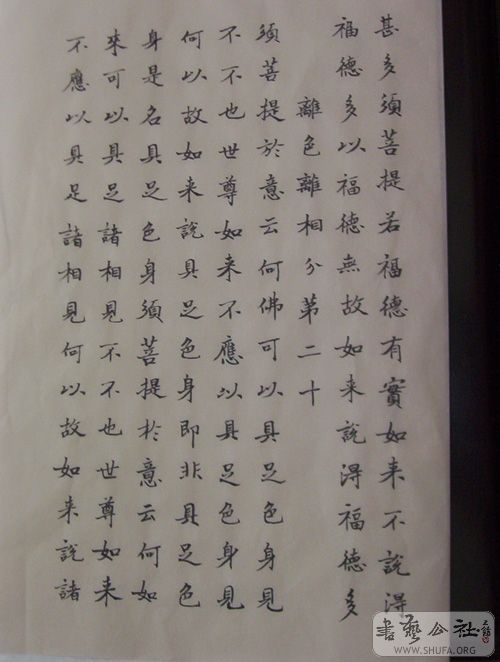 甚多須菩提若福德有實如来不說淂
福德多以福德無故如来說淂福德多
離色離相分第二十
須菩提於意云何佛可以具足色身見
不不也世尊如来不應以具足色身見
何以故如来說具足色身即非具足色
身是名具足色身須菩提於意云何如
來可以具足諸相見不不也世尊如来
不應以具足諸相見何以故如来說諸
書藝公社
WWW.SHUFA.ORG